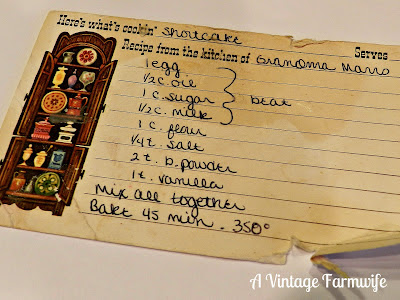 Here's what's cookin' Shortcake Serves
Recipe from the kitchen of Grandma Marro
1 egg
1/2 c. oil
1 c. sugar beat
1/2 c. milk
1 c. flour
1/4 t. salt
2 t. b. powder
1 t. vanilla
Mix all together
Bake 45 min. 350°
A Vintage Farmwife